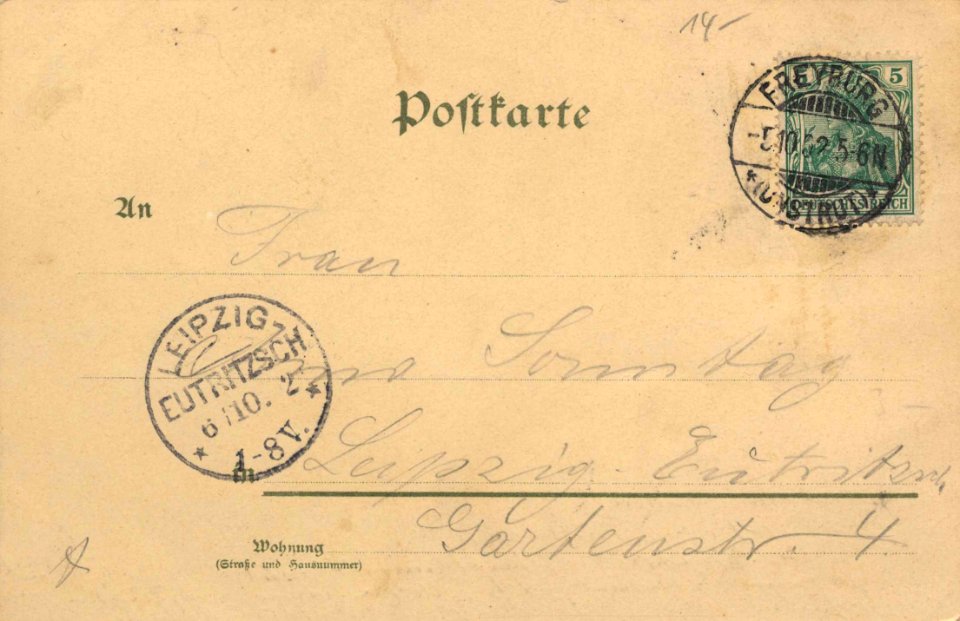 14-
Postkarte
5
FREYBURG
-5.10.02.5-6N.
*(UNSTRUT)*
DEUTSCHES REICH
An
Frau
Sonntag
LEIPZIG
EUTRITZSCH
6/10. 2
* 7-8V. *
in Leipzig. Eutritzsch.
Gartenstr. 4.
Wohnung
(Straße und Hausnummer)